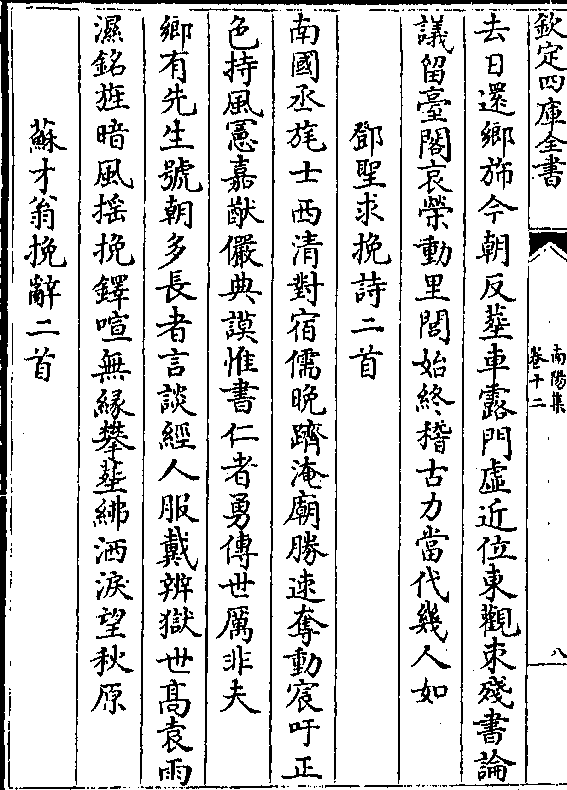 欽定四庫全書
南陽集
卷十二
八
去日還鄉斾今朝反葬車露門虛近位東觀束殘書論
議留臺閣哀榮動里閭始終稽古力當代幾人如
鄧聖求挽詩二首
南國丞旄士西清對宿儒晚躋淹廟勝速奪動宸吁正
色持風憲嘉猷儼典謨惟書仁者勇傳世厲非夫
鄉有先生號朝多長者言談經人服戴辨獄世髙袁雨
濕銘旌暗風揺挽鐸喧無緣攀葬紼洒淚望秋原
蘇才翁挽辭二首